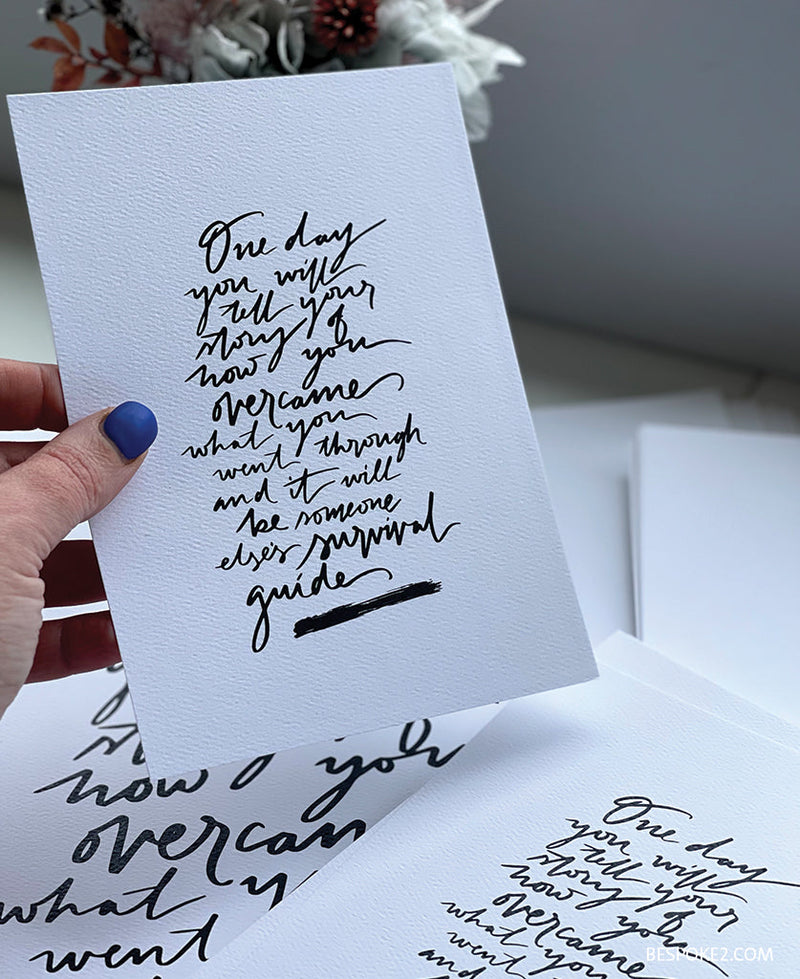 One day
you will
tell your
story of
how you
overcame
what you
went through
and it will
be someone
else's survival
guide
how you
overcam
what y
went
One day
you will
tell your
story of
how you
overcame
what you
went
and
BESPOKE2.COM